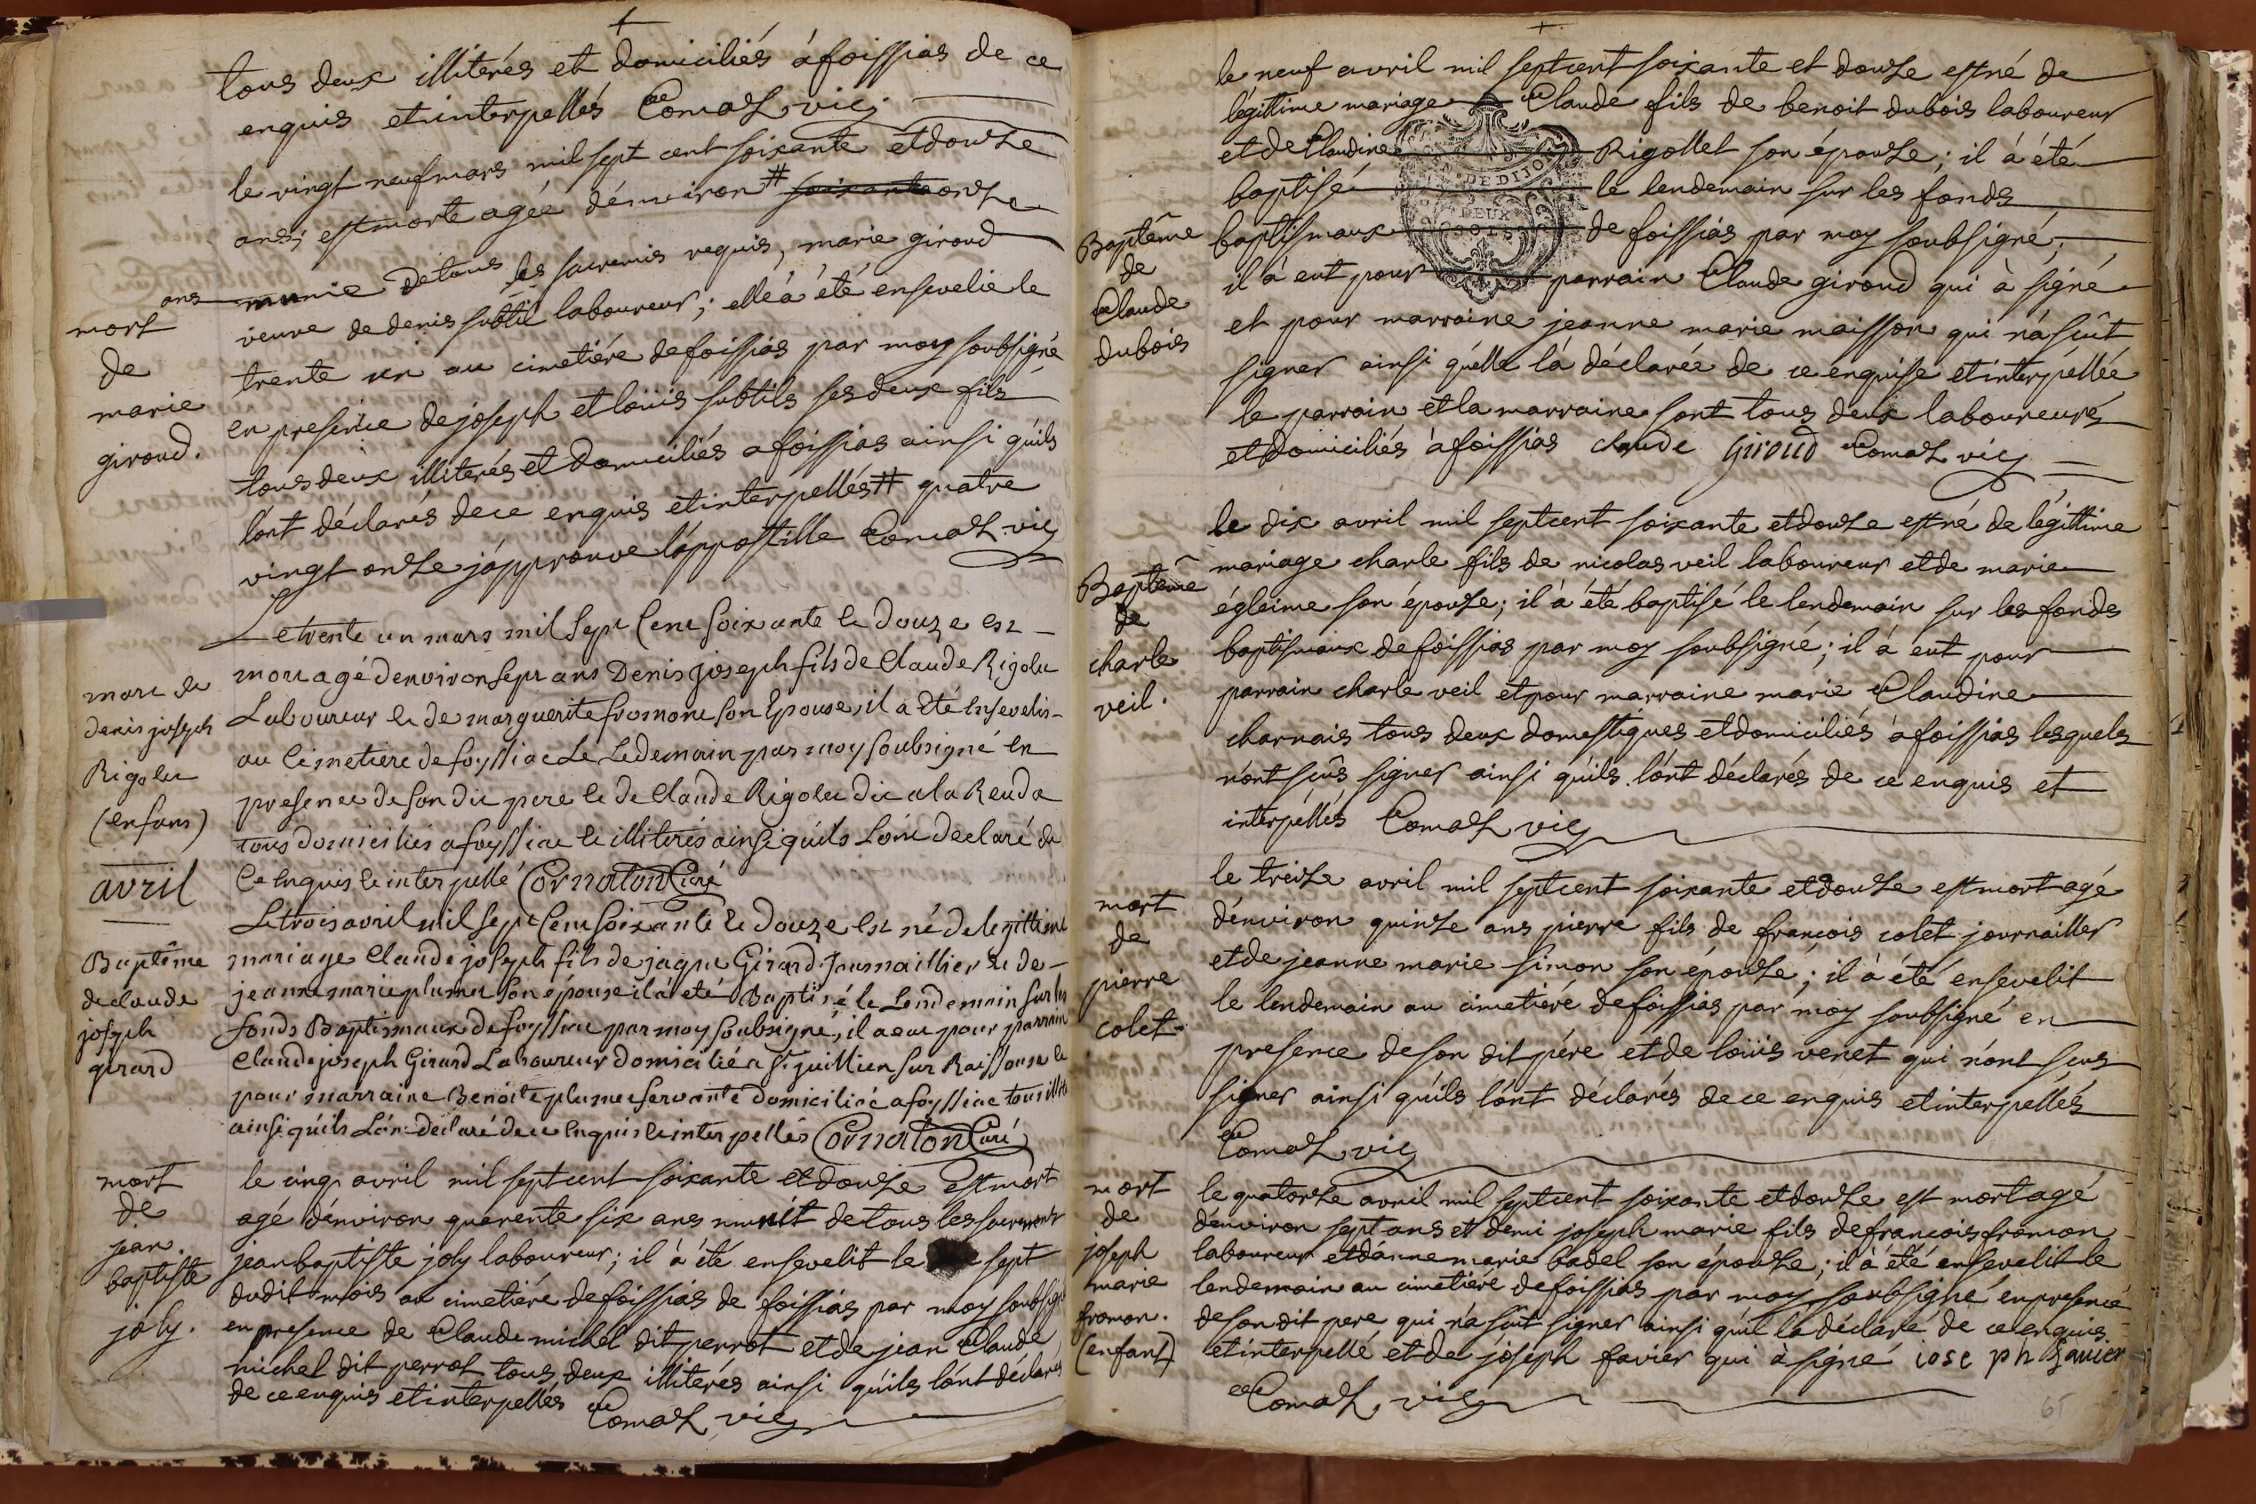 +
tous deux illiterés et domiciliés à foissias de ce
enquis et interpellés Comaz vic.
le vingt neuf mars mil sept cent soixante et douze
ans; est morte agée d'environ # soixante onze
ans munie de tous les sacremens requis, marie giroud
veuve de denis subtil laboureur; elle à été ensevelie le
trente un au cimetiére de foissias par moy soubsigné
en presence de joseph et loüis subtils ses deux fils
tous deux illiterés et domiciliés a foissias ainsi qu'ils
l'ont déclarés de ce enquis et interpellés # quatre
vingt onze j'approuve l'appostille Comaz vic
mort
de
marie
giroud.
Le trente un mars mil sept cent soixante et douze est
mort agé d'environ sept ans Denis joseph fils de Claude Rigolet
Laboureur et de marguerite fromont son Epouse, il a été Ensevelis
au Cimetiere de foyssiac Le Ledemain par moy soubsigné En
presence de son dit pere et de Claude Rigolet dit a la Reuda
tous domiciliés a foyssiac et illiterés ainsi qu'ils L'ont declaré de
Ce Enquis et interpellé Cornaton Curé
mort de
denis joseph
Rigolet
(enfant)
avril
Le trois avril mil sept Cent soixante et douze Est né de legittime
mariage Claude joseph fils de jaque Girard journaillier et de
jeanne marie plumet son epouse il a eté Baptisé le Lendemain sur les
fonds Baptismaux de foyssiac par moy soubsigné, il a eut pour parrain
Claude joseph Girard Laboureur domicilié a St juillien sur Raissouse et
pour marraine Benoite plumet servante domiciliée a foyssiac tous illité
ainsi qu'ils L'on declaré de ce Enquis et interpellés Cornaton Curé
Baptême
de claude
joseph
girard
le cinq avril mil sept cent soixante et douze est mort
agé d'environ quarente six ans munit de tous les sacrements
jean baptiste joly laboureur; il à été ensevelit le sept
dudit mois au cimetiére de foissias de foissias par moy soubsigné
en presence de Claude michel dit perrot et de jean Claude
michel dit perrot tous deux illiterés ainsi qu'ils l'ont déclarés
de ce enquis et interpellés Comaz vic
mort
de
jean
baptiste
joly.
+
le neuf avril mil sept cent soixante et douze est né de
légittime mariage Claude fils de benoit dubois laboureur
et de Claudine Rigollet son épouse; il à été
baptisé le lendemain sur les fonds
baptismaux de foissias par moy soubsigné;
il à eut pour parrain Claude giroud qui à signé
et pour marraine jeanne marie maisson qui n'a sçût
signer ainsi qu'elle l'a déclarée de ce enquise et interpéllée
le parrain et la marraine sont tous deux laboureurs
et domiciliés à foissias claude Giroud Comaz vic
DE DIJON
DEUX
SOLS
Baptême
de
Claude
dubois
le dix avril mil sept cent soixante et douze est né de légittime
mariage charle fils de nicolas veil laboureur et de marie
égleime son épouse; il à été baptisé le lendemain sur les fonds
baptismaux de foissias par moy soubsigné; il à eut pour
parrain charle veil et pour marraine marie Claudine
charnais tous deux domestiques et domiciliés à foissias lesquels
n'ont sçûs signer ainsi qu'ils l'ont déclarés de ce enquis et
interpéllés Comaz vic
Baptême
de
charle
veil.
le treize avril mil sept cent soixante et douze est mort agé
d'environ quinze ans pierre fils de francois colet journailler
et de jeanne marie simon son épouse; il à été ensevelit
le lendemain au cimetiére de foissias par moy soubsigné en
presence de son dit pére et de loüis venet qui n'ont sçus
signer ainsi qu'ils l'ont déclarés de ce enquis et interpellés
Comaz vic
mort
de
pierre
colet
le quatorze avril mil sept cent soixante et douze est mort agé
d'environ sept ans et demi joseph marie fils de francois fromon
laboureur et d'anne marie badel son épouse; il à été ensevelit le
lendemain au cimetiére de foissias par moy soubsigné en presence
de son dit pere qui n'a sçût signer ainsi qu'il l'a déclaré de ce enquis
et interpellé et de joseph favier qui à signé iose ph favier
Comaz vic
mort
de
joseph
marie
fromon.
(enfant)
65